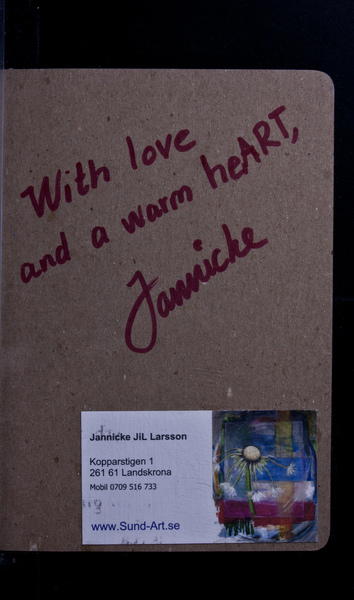 With love
and a warm heART,
Jannicke
Jannicke JiL Larsson
Kopparstigen 1
261 61 Landskrona
Mobil 0709 516 733
www.Sund-Art.se